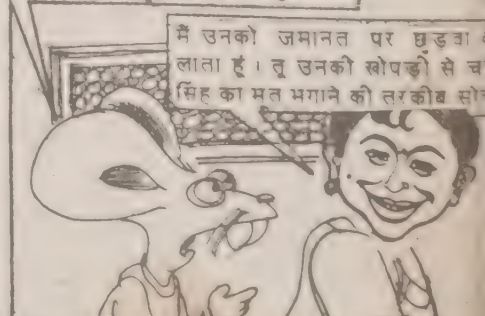 मैं उनको जमानत पर छुड़वा
लाता हूं । तू उनकी खोपड़ी से
सिंह का मत भगाने की तरकीब